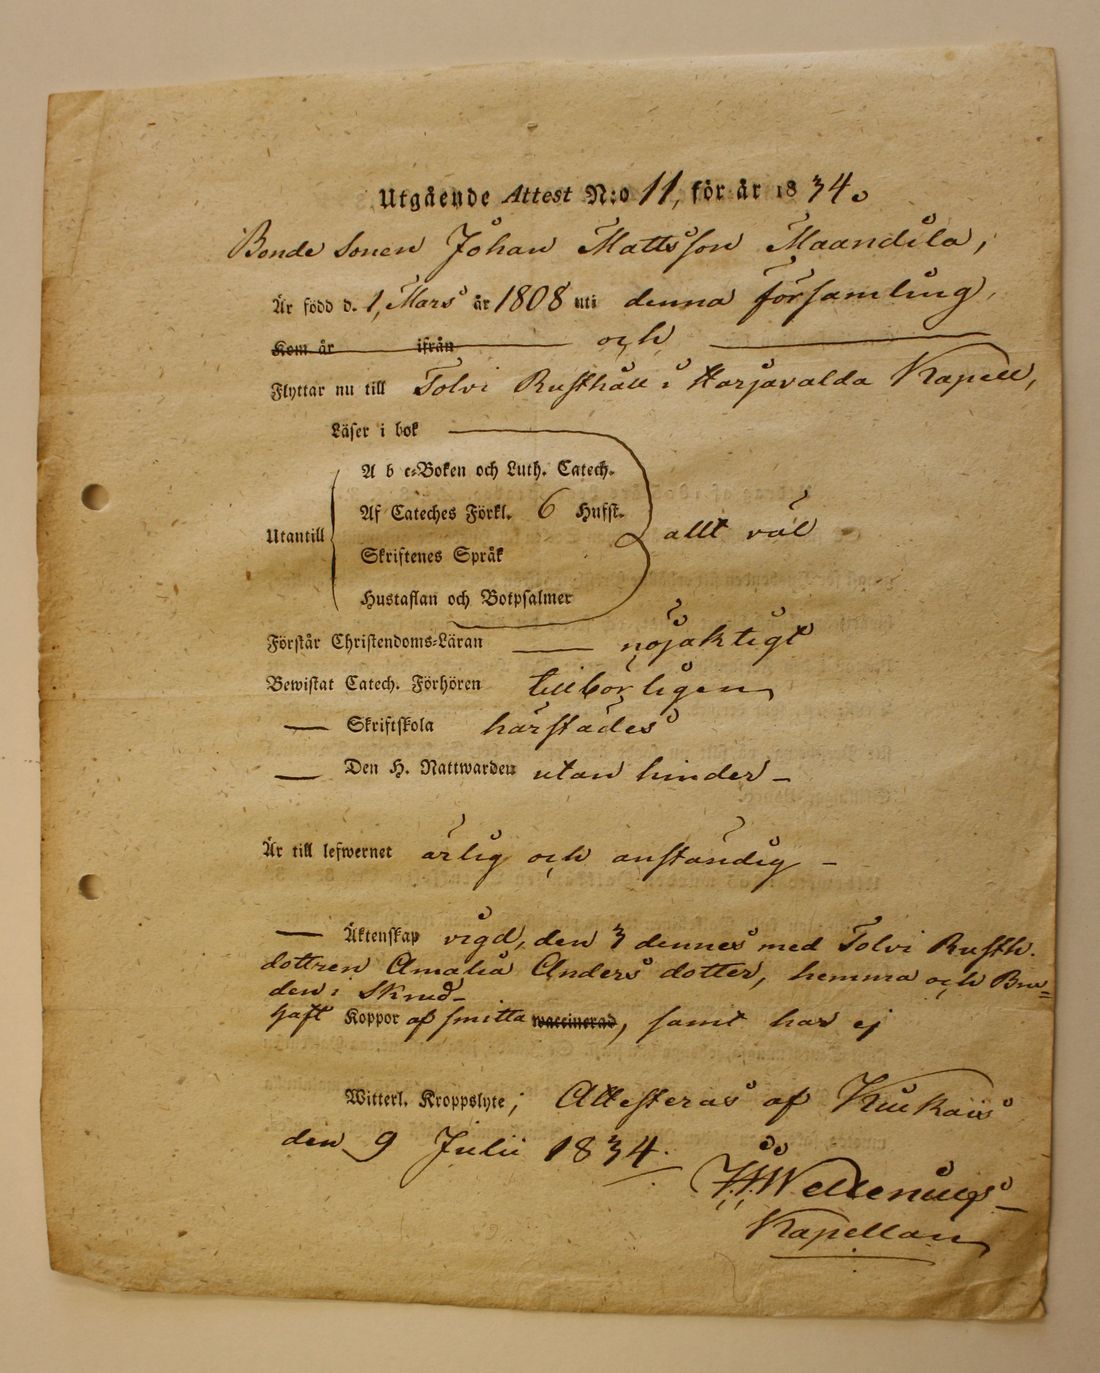 Utgående Attest N:o 11, för år 1834.
Bonde Sonen Johan Mattsson Maandila,
Är född d. 1 Mars år 1808 uti denna församling,
Kom år ifrån och
Flyttar nu till Tolvi Rusthåll i Harjavalda Kapell,
Läser i bok
A b c-Boken och Luth. Catech.
Af Cateches Förkl. 6 Hufst.
Utantill allt väl
Skriftenes Språk
Hustaflan och Botpsalmer
Förstår Christendoms-Läran nöjaktigt
Bewistat Catech. Förhören tillbörligen
— Skriftskola härstädes
— Den H. Nattwarden utan hinder –
Är till lefwernet ärlig och anständig –
— Äktenskap vigd, den 3 dennes med Tolvi Rusth.
dottren Amalia Anders dotter, hemma och Bru=
den i Skrud–
Haft Koppor af smitta waccinerad, samt har ej
Witterl. Kroppslyte; Attesteras af Kiukais
den 9 Julii 1834.
Kapellan